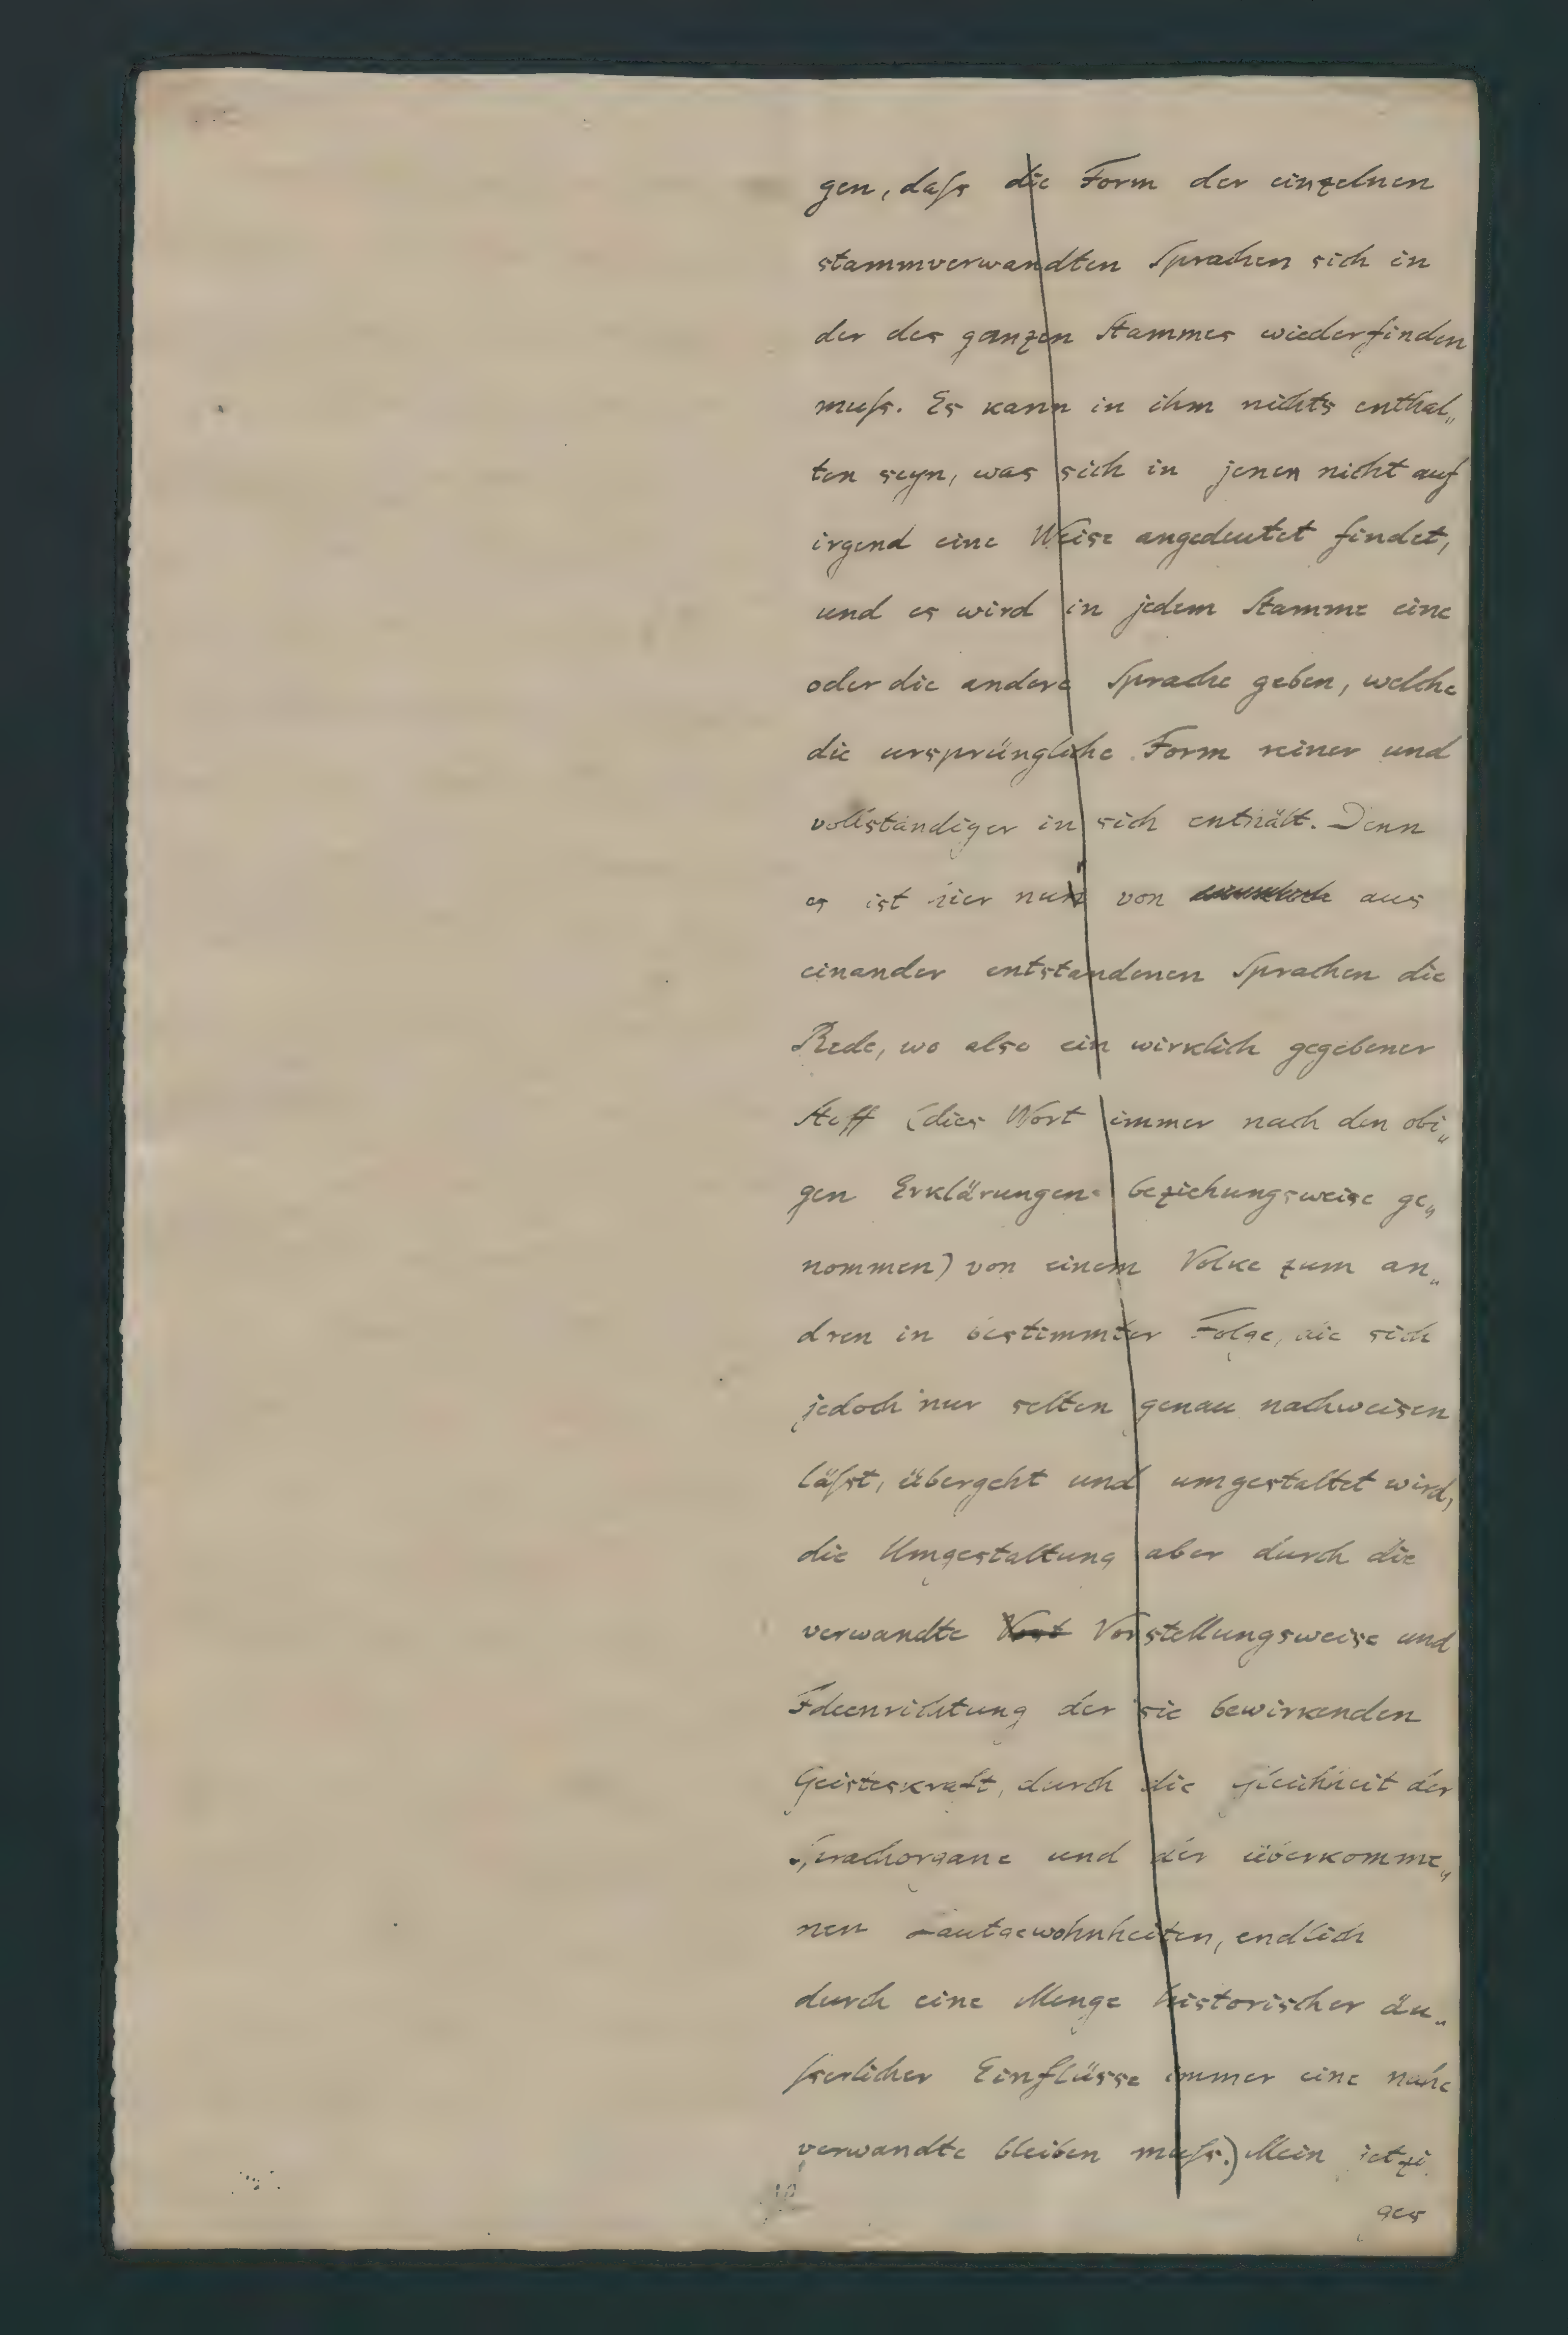 gen, daſs die Form der einzelnen
stammverwandten Sprachen sich in
der des ganzen Stammes wiederfinden
muſs. Es kann in ihm nichts enthal„
ten seyn, was sich in jenen nicht auf
irgend eine Weise angedeutet findet,
und es wird in jedem Stamme eine
oder die andere Sprache geben, welche
die ursprüngliche Form reiner und
vollständiger in sich enthält. Denn
es ist hier nur von aus
einander entstandenen Sprachen die
Rede, wo also ein wirklich gegebener
Stoff (dies Wort immer nach den obi„
gen Erklärungen beziehungsweise ge„
nommen) von einem Volke zum an„
dren in bestimmter Folge, die sich
jedoch nur selten genau nachweisen
läſst, übergeht und umgestaltet wird,
die Umgestaltung aber durch die
verwandte Vorstellungsweise und
Ideenrichtung der sie bewirkenden
Geisteskraft, durch die Gleichheit der
Sprachorgane und der überkomme„
nen Lautgewohnheiten, endlich
durch eine Menge historischer äu„
ſserlicher Einflüsse immer eine nahe
verwandte bleiben muſs.) Mein jetzi
ges